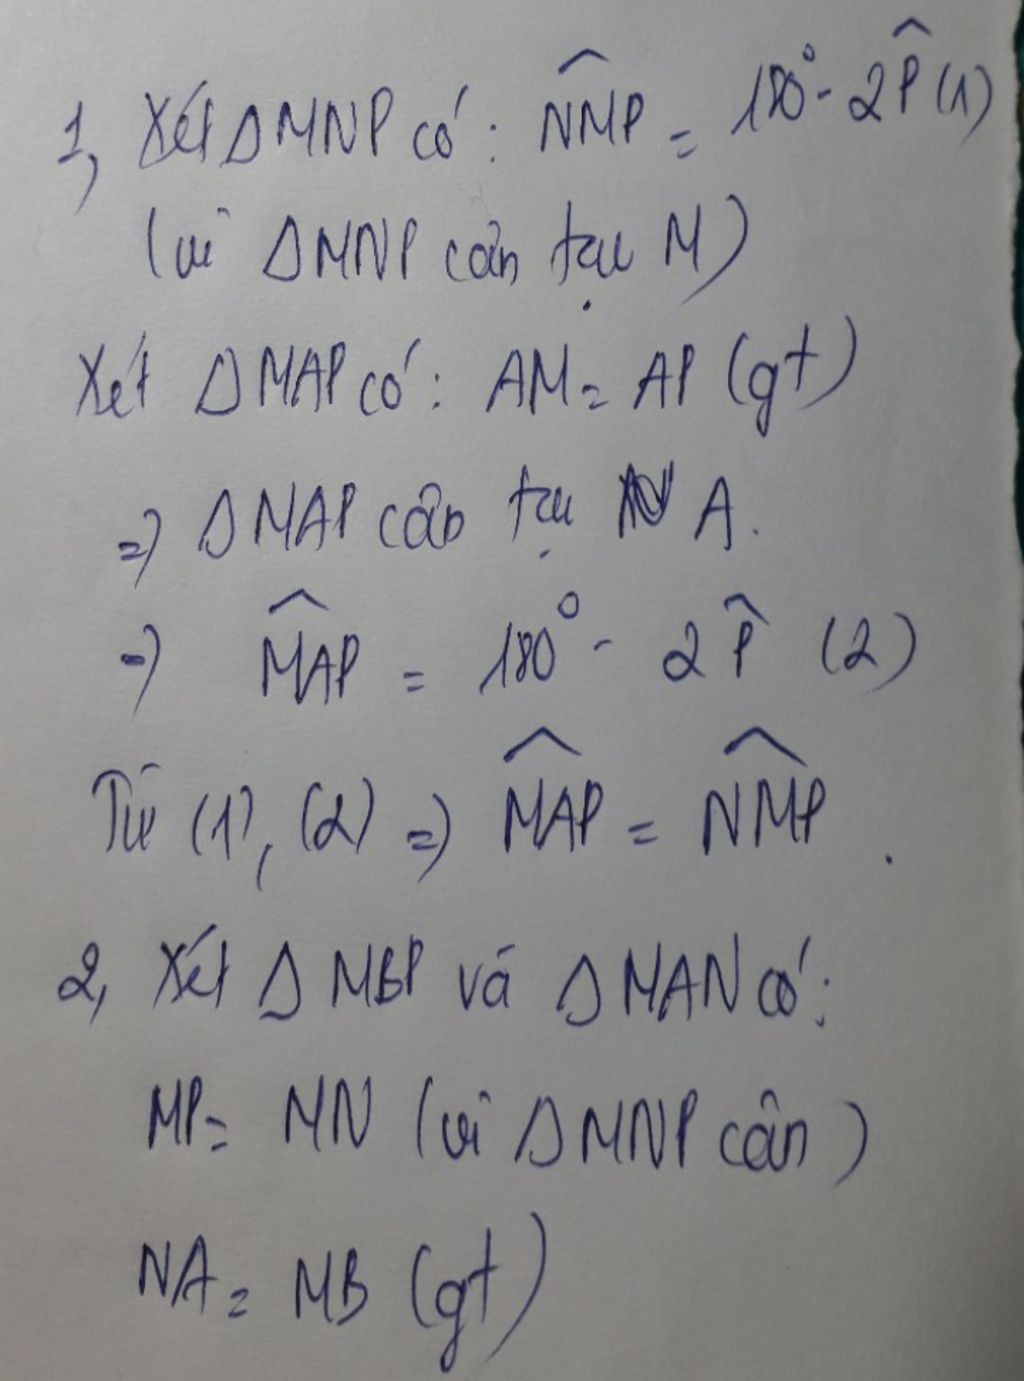 1, Xét ΔMNP có: \widehat{NMP} = 180° - 2\widehat{P} (1)
(vì ΔMNP cân tại M)
Xét ΔMAP có: AM = AP (gt)
=) ΔMAP cân tại A.
=) \widehat{MAP} = 180° - 2\widehat{P} (2)
Từ (1), (2) =) \widehat{MAP} = \widehat{NMP}.
2, Xét ΔMBP và ΔMAN có:
MP = MN (vì ΔMNP cân)
NA = MB (gt)